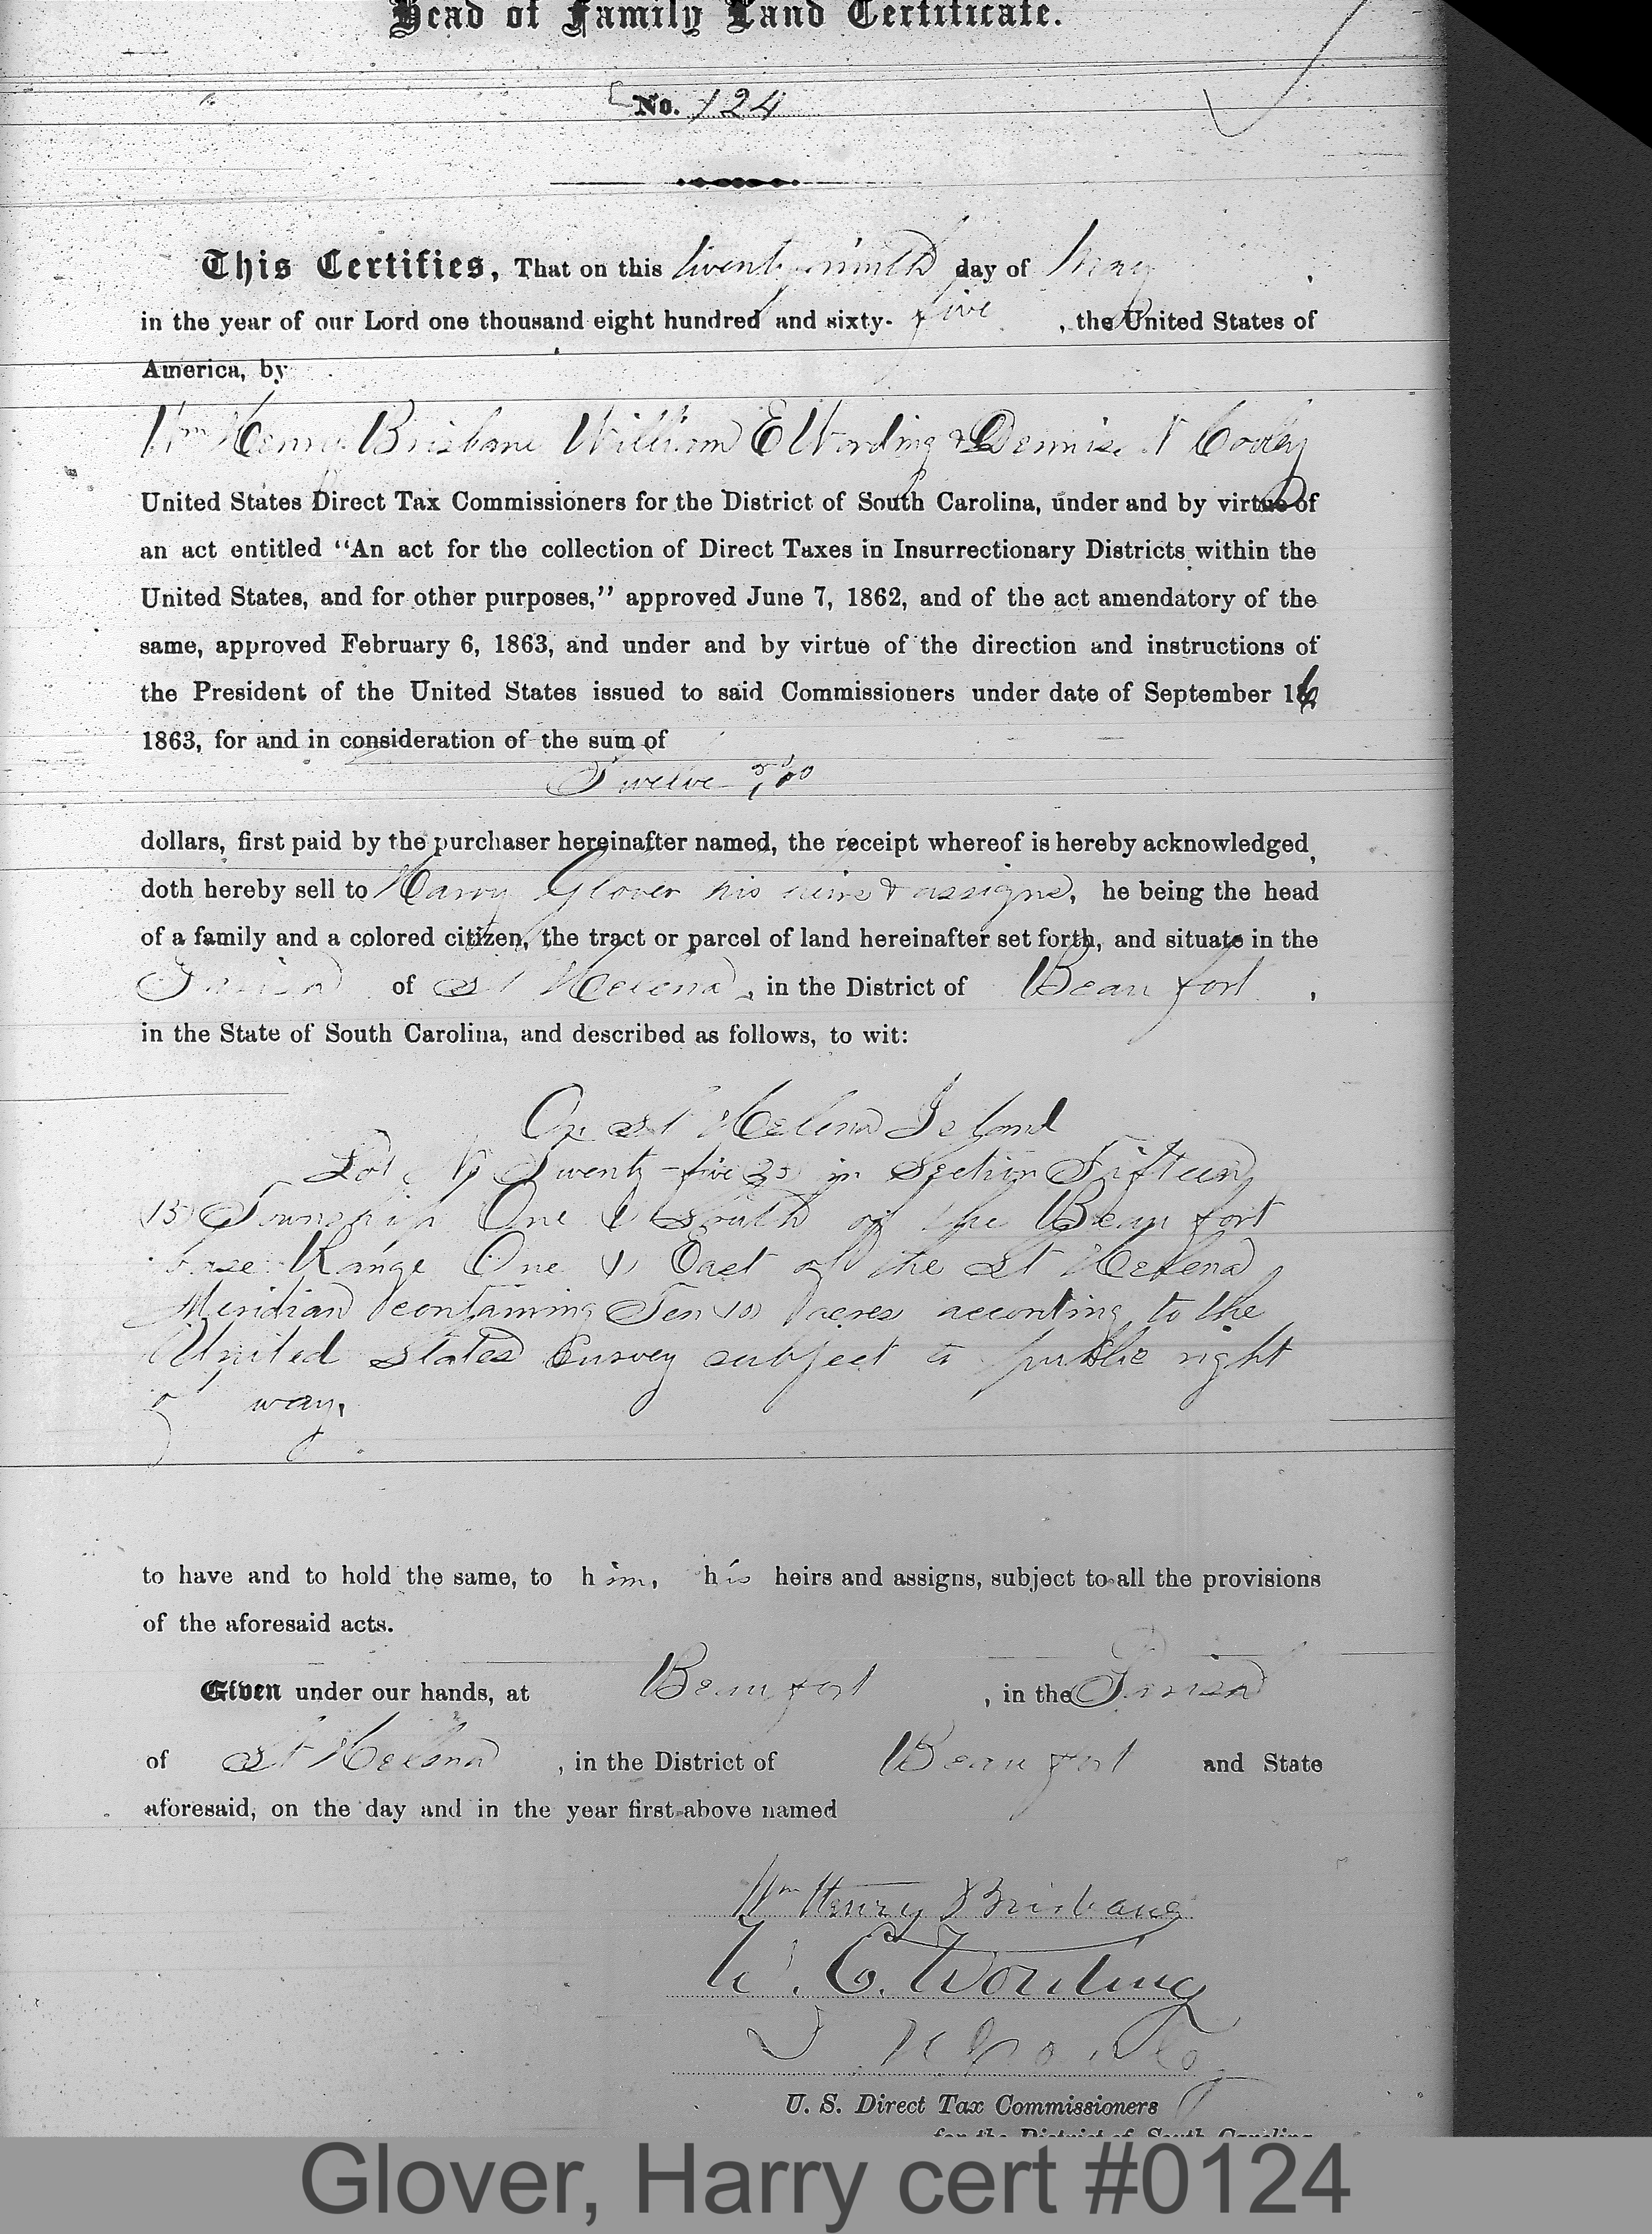 Head of Family Land Certificate.
No. 124
This Certifies, That on this twenty-ninth day of May
in the year of our Lord one thousand eight hundred and sixty-five, the United States of
America, by
Wm Henry Brisbane William E Wording & Dennis N Cooley
United States Direct Tax Commissioners for the District of South Carolina, under and by virtue of
an act entitled “An act for the collection of Direct Taxes in Insurrectionary Districts within the
United States, and for other purposes,” approved June 7, 1862, and of the act amendatory of the
same, approved February 6, 1863, and under and by virtue of the direction and instructions of
the President of the United States issued to said Commissioners under date of September 16
1863, for and in consideration of the sum of
Twelve
dollars, first paid by the purchaser hereinafter named, the receipt whereof is hereby acknowledged,
doth hereby sell to Harry Glover his heirs & assigns, he being the head
of a family and a colored citizen, the tract or parcel of land hereinafter set forth, and situate in the
Parish of St Helena, in the District of Beaufort,
in the State of South Carolina, and described as follows, to wit:
On St Helena Island
Lot No Twenty-five 25 in Section Fifteen
(15) Township One (1) South of the Beaufort
base Range One (1) East of the St Helena
Meridian containing Ten (10) acres according to the
United States Survey subject to public right
of way.
to have and to hold the same, to him, his heirs and assigns, subject to all the provisions
of the aforesaid acts.
Given under our hands, at Beaufort, in the Parish
of St Helena, in the District of Beaufort and State
aforesaid, on the day and in the year first above named
Wm Henry Brisbane
W. E. Wording
D N Cooley
U. S. Direct Tax Commissioners
for the District of South Carolina
Glover, Harry cert #0124